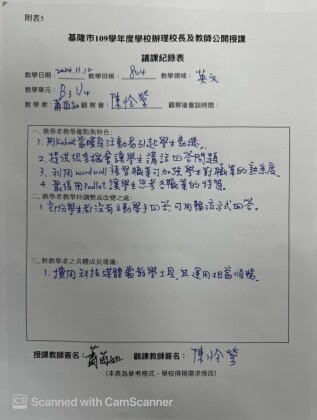 附表5
基隆市109學年度學校辦理校長及教師公開授課
議課紀錄表
教學日期：2024.11.12 教學班級：804 教學領域：英文
教學單元：B3U4
教學者： 觀察者：陳怜瑩 觀察後會談時間：
一、教學者教學優點與特色：
1. 用Kahoot當暖身活動易引起學生動機。
2. 提供很多機會讓學生講話回答問題。
3. 利用wordwall 複習職業可加強學生對職業的熟悉度。
4. 最後用Padlet讓學生思考各職業的特質。
二、教學者教學待調整或改變之處：
1. 部份學生都沒有主動舉手回答,可用輪流方式回答。
三、對教學者之具體成長建議：
1. 擅用科技媒體當教學工具,且運用相當順暢。
授課教師簽名： 觀課教師簽名：陳怜瑩
（本表為參考格式，學校得視需求修改）
CS Scanned with CamScanner